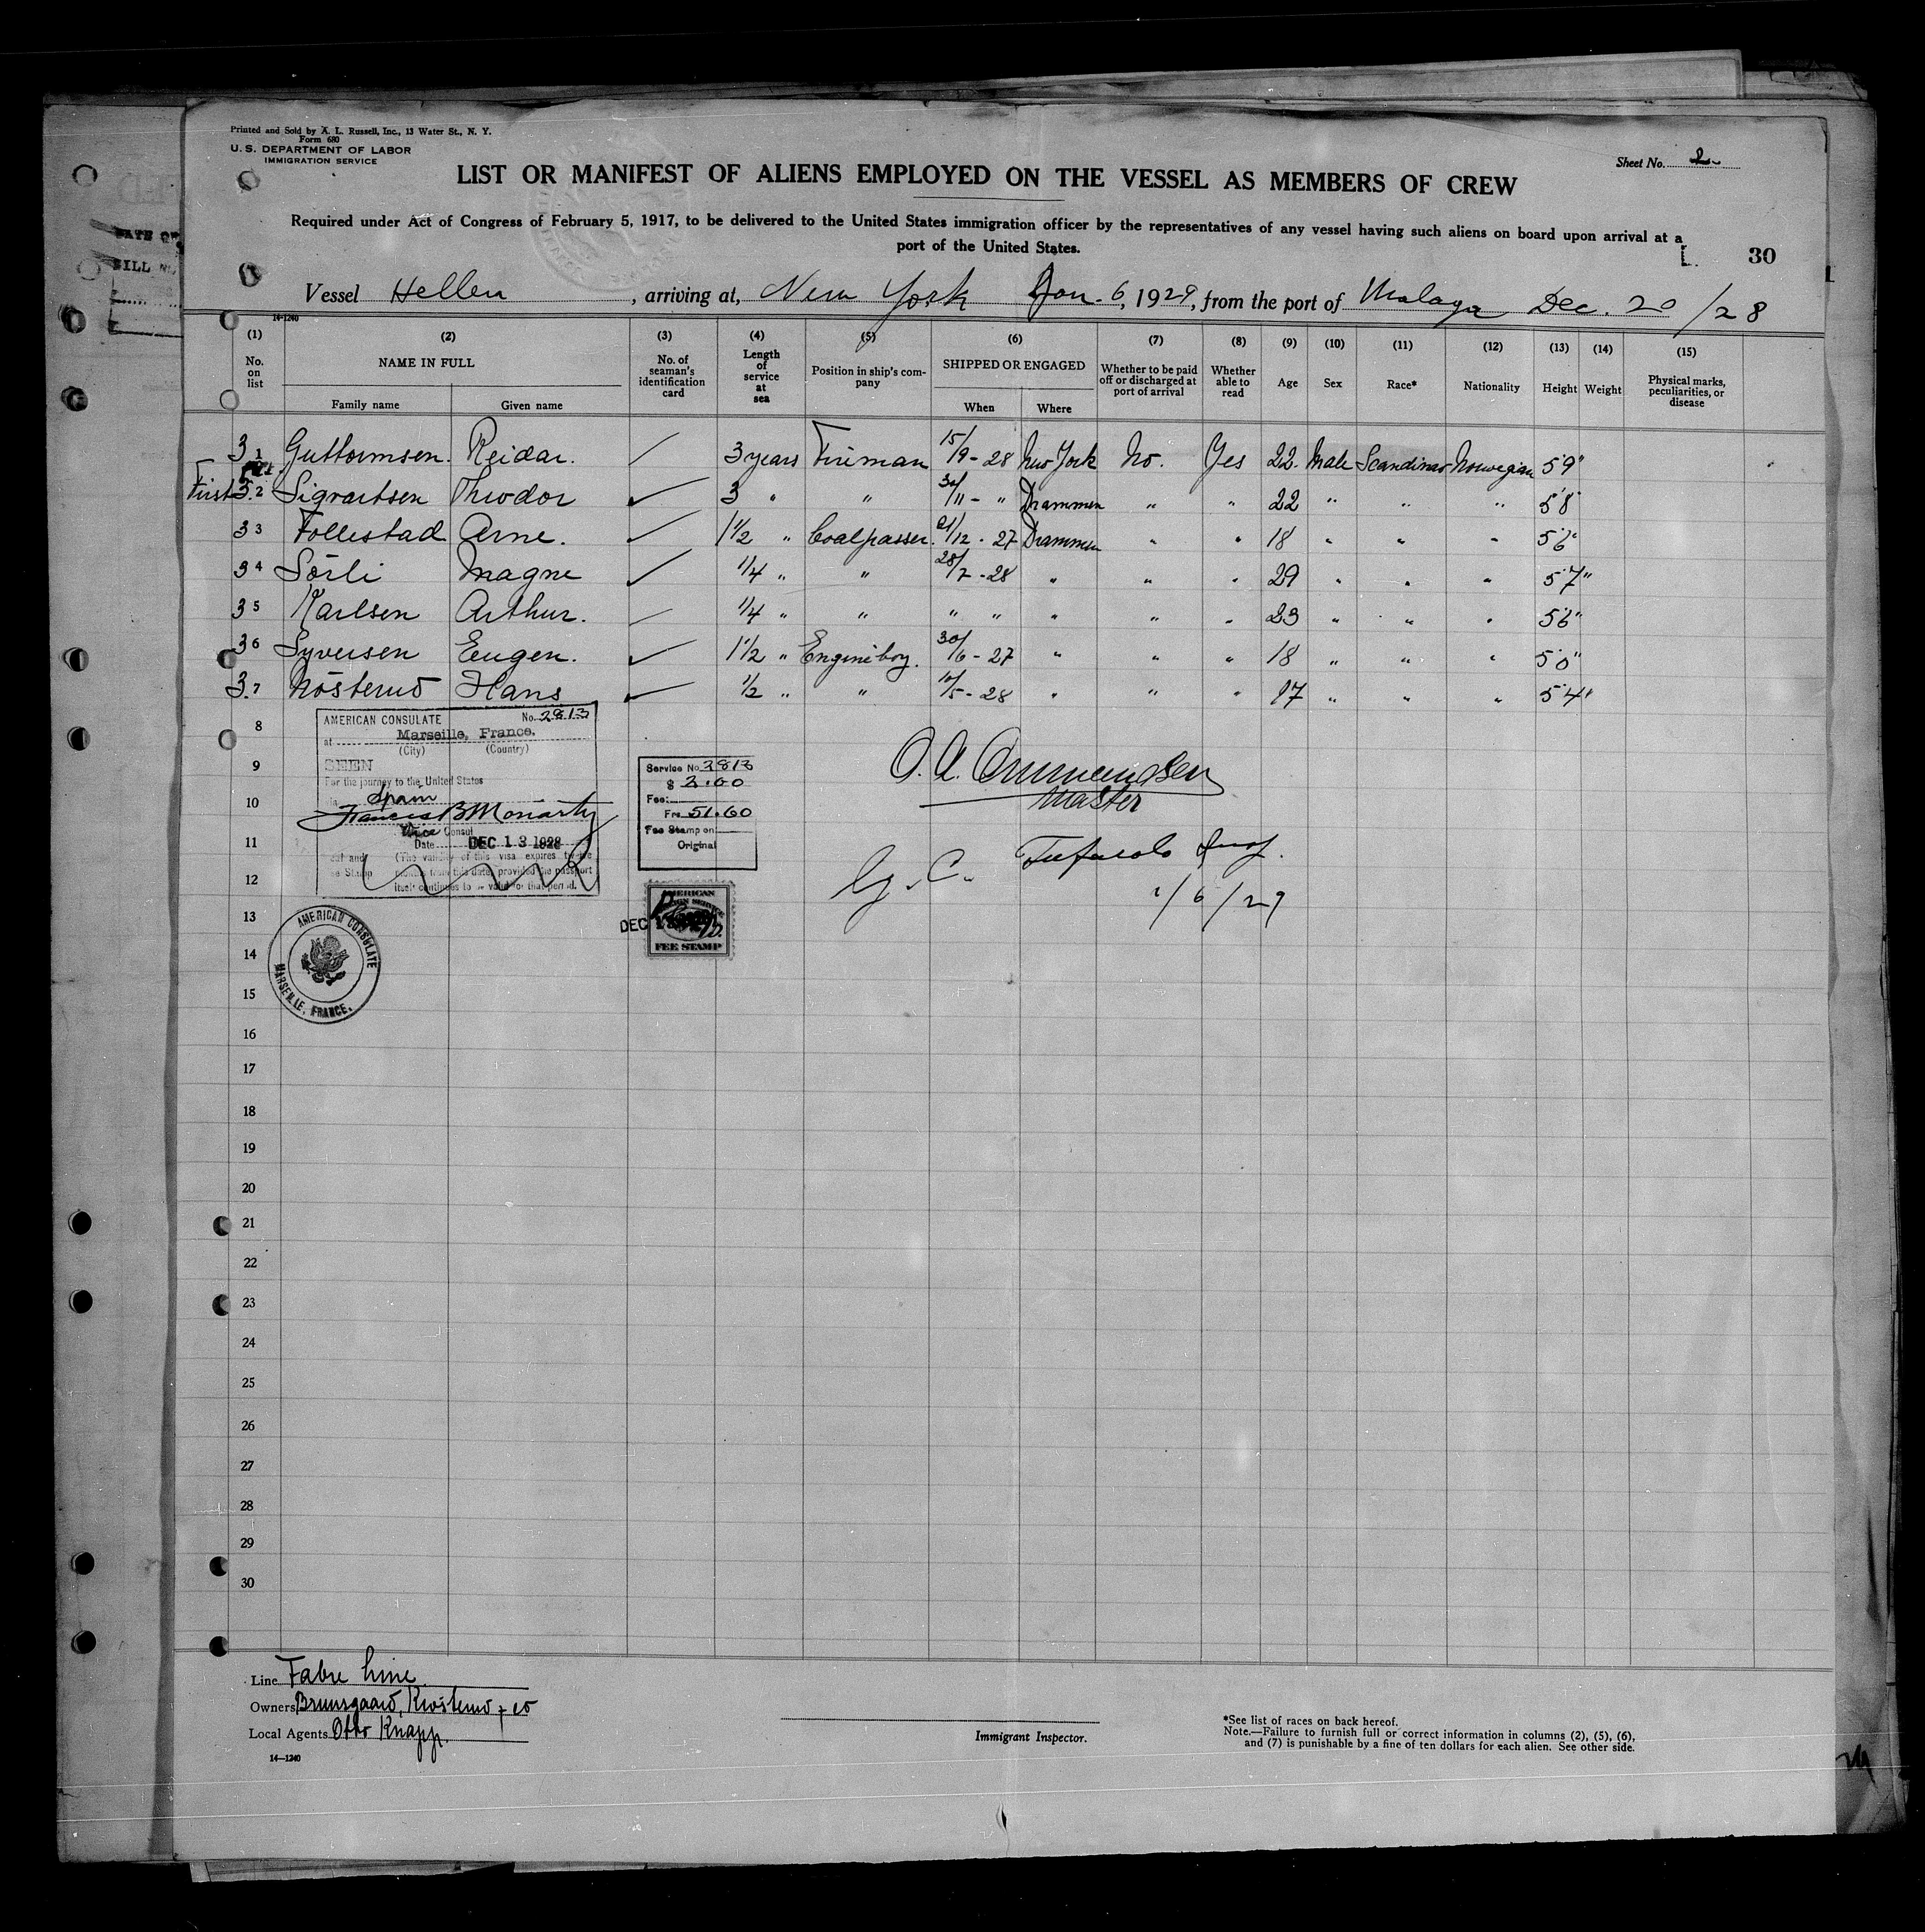 Printed and Sold by A. L. Russell, Inc., 13 Water St., N. Y.
Form 680
U. S. DEPARTMENT OF LABOR
IMMIGRATION SERVICE
Sheet No. 2
LIST OR MANIFEST OF ALIENS EMPLOYED ON THE VESSEL AS MEMBERS OF CREW
Required under Act of Congress of February 5, 1917, to be delivered to the United States immigration officer by the representatives of any vessel having such aliens on board upon arrival at a
port of the United States.
30
Vessel Hellen, arriving at, New York Jan. 6, 1929, from the port of Malaga Dec. 20/28
14-1240
(1) (2) (3) (4) (5) (6) (7) (8) (9) (10) (11) (12) (13) (14) (15)
No. on list NAME IN FULL No. of seaman's identification card Length of service at sea Position in ship's company SHIPPED OR ENGAGED Whether to be paid off or discharged at port of arrival Whether able to read Age Sex Race* Nationality Height Weight Physical marks, peculiarities, or disease
Family name Given name When Where
31 Guttormsen. Reidar. 3 years Fireman 15/9-28 New York No. Yes 22. Male Scandinav Norwegian 5'9"
First 3.2 Sigvartsen Theodor 3 " " 30/11- " Drammen " " 22 " " " 5'8"
33 Follestad Arne. 1½ " Coalpasser. 21/12-27 Drammen " " 18 " " " 5'6"
34 Sörli Magne ¼ " " 28/7-28 " " " 29 " " " 5'7"
35 Karlsen Arthur. ¼ " " " " " " " 23 " " " 5'6"
36 Syversen Eugen. 1½ " Engineboy. 30/6-27 " " " 18 " " " 5'0"
3.7 Nösterud Hans ½ " " /5-28 " " " 17 " " " 5'4"
8
AMERICAN CONSULATE No. 2813
at Marseille, France.
(City) (Country)
9
SEEN
For the journey to the United States
via Spain
10
Francis B Moriarty
Vice Consul
11
Date DEC 13 1928
(The validity of this visa expires twelve
months from this date, provided the passport
itself continues to be valid for that period.
12
Service No. 2813
$ 2.00
Fee:
Frs 51.60
Fee Stamp on
Original
O. A. Ommundsen
Master
G. C. Insp.
1/6/29
13
AMERICAN
FEE STAMP
DEC 13
AMERICAN CONSULATE
MARSEILLE, FRANCE.
14
15
16
17
18
19
20
21
22
23
24
25
26
27
28
29
30
Line Fabre Line
Owners Bruusgaard, Kiosterud & Co
Local Agents Otto Knapp.
14—1240
Immigrant Inspector.
*See list of races on back hereof.
Note.—Failure to furnish full or correct information in columns (2), (5), (6),
and (7) is punishable by a fine of ten dollars for each alien. See other side.